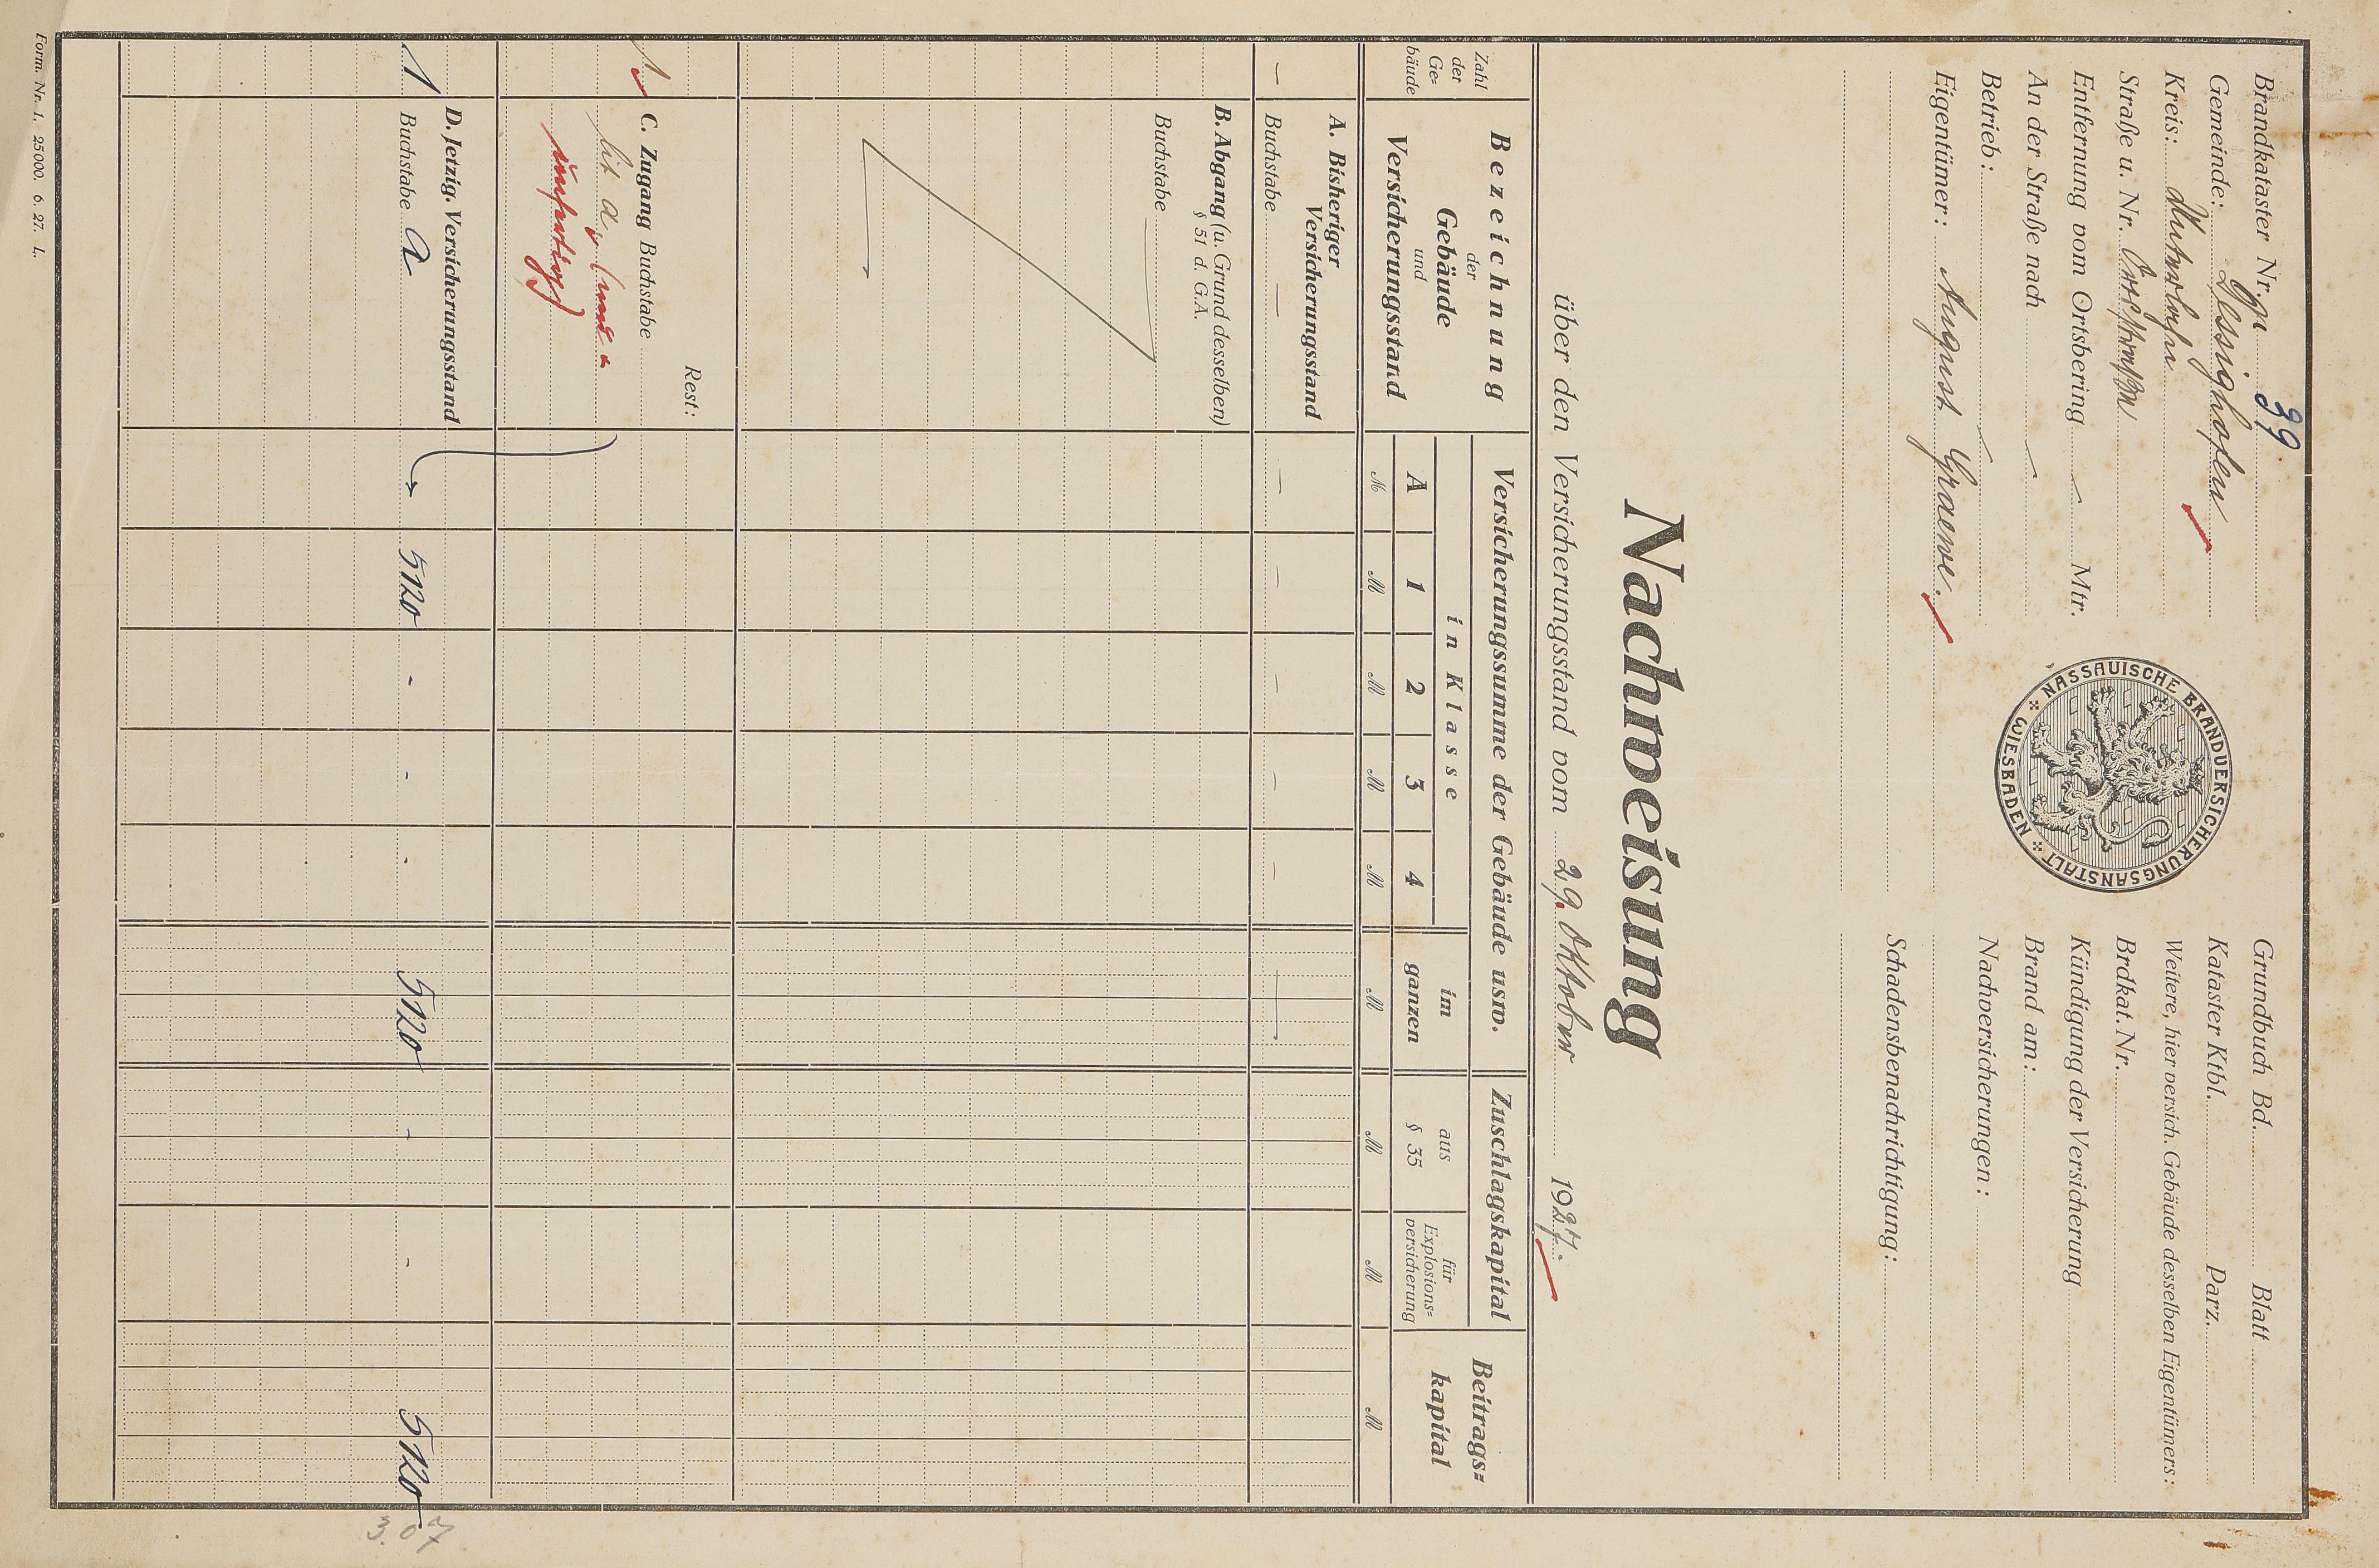 Brandkataster Nr. 99.
Gemeinde: Dessighofen
Kreis: Unterlahn
Straße u. Nr. Ortsstraße
Entfernung vom Ortsbering — Mtr.
An der Straße nach —
Betrieb: —
Eigentümer: August Graeve.
NASSAUISCHE BRANDVERSICHERUNGSANSTALT
WIESBADEN
Grundbuch Bd. Blatt
Kataster Ktbl. Parz.
Weitere, hier versich. Gebäude desselben Eigentümers:
Brdkat. Nr.
Kündigung der Versicherung
Brand am:
Nachversicherungen:
Schadensbenachrichtigung:
Nachweisung
über den Versicherungsstand vom 29. Oktober 1927.
Zahl der Ge=bäude
Bezeichnung
der
Gebäude
und
Versicherungsstand
Versicherungssumme der Gebäude usw.
in Klasse
A 1 2 3 4
im ganzen
Zuschlagskapital
aus § 35
für Explosions=versicherung
Beitrags=kapital
M M M M M M M M M
A. Bisheriger
Versicherungsstand
— Buchstabe — — — — — — —
B. Abgang (u. Grund desselben)
§ 51 d. G.A.
Buchstabe —
Rest:
1 C. Zugang Buchstabe
lit a,
unfertig)
D. Jetzig. Versicherungsstand
1 Buchstabe a 5120 - - - 5120 - - 5120
3.07
Form. Nr. 1. 25000. 6. 27. L.